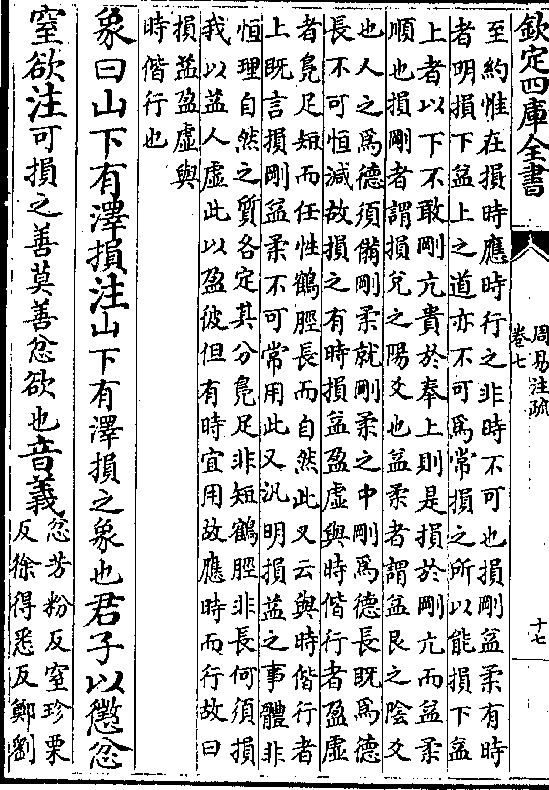 欽定四庫全書
周易注疏
卷七
十七
至約惟在損時應時行之非時不可也損剛益柔有時
者明損下益上之道亦不可為常損之所以能損下益
上者以下不敢剛亢貴於奉上則是損於剛亢而益柔
順也損剛者謂損兌之陽爻也益柔者謂益艮之陰爻
也人之為德須備剛柔就剛柔之中剛為德長既為德
長不可恒減故損之有時損益盈虛與時偕行者盈虛
者鳧足短而任性鶴脛長而自然此又云與時偕行者
上既言損剛益柔不可常用此又汎明損益之事體非
恒理自然之質各定其分鳧足非短鶴脛非長何須損
我以益人虛此以盈彼但有時宜用故應時而行故曰
損益盈虛與
時偕行也
象曰山下有澤損注山下有澤損之象也君子以懲忿
窒欲注可損之善莫善忿欲也音義
忿芳粉反窒珍栗
反徐得悉反鄭劉